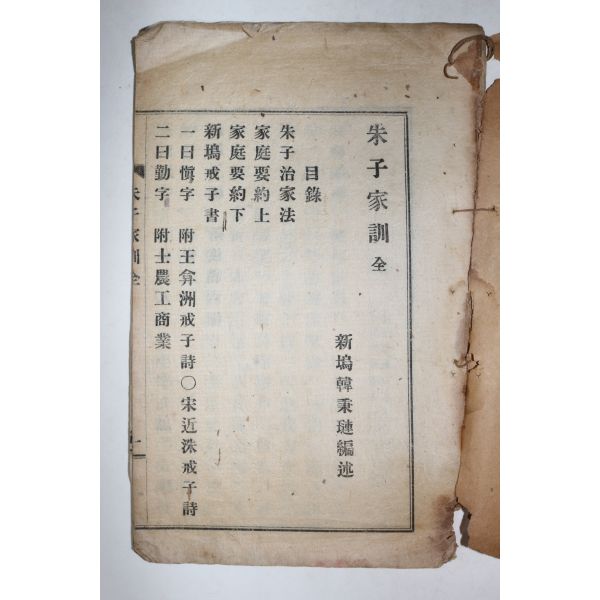 朱子家訓 全
新塢韓秉璉編述
目錄
朱子治家法
家庭要約上
家庭要約下
新塢戒子書
一曰愼字 附王弇洲戒子詩〇宋近洙戒子詩
二曰勤字 附士農工商業
朱子家訓全
一